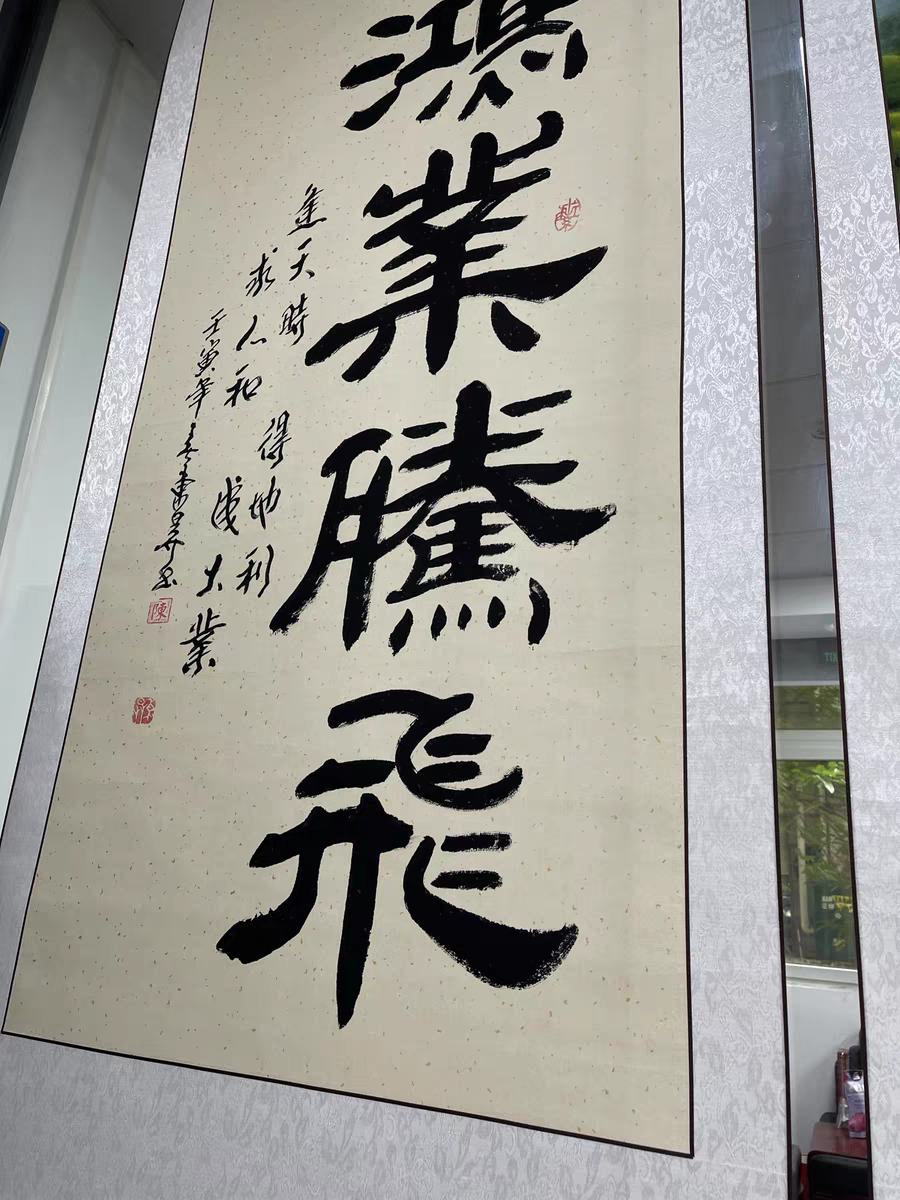 鴻業騰飛
天時 得地利
求人和 成大業
壬寅年
陳